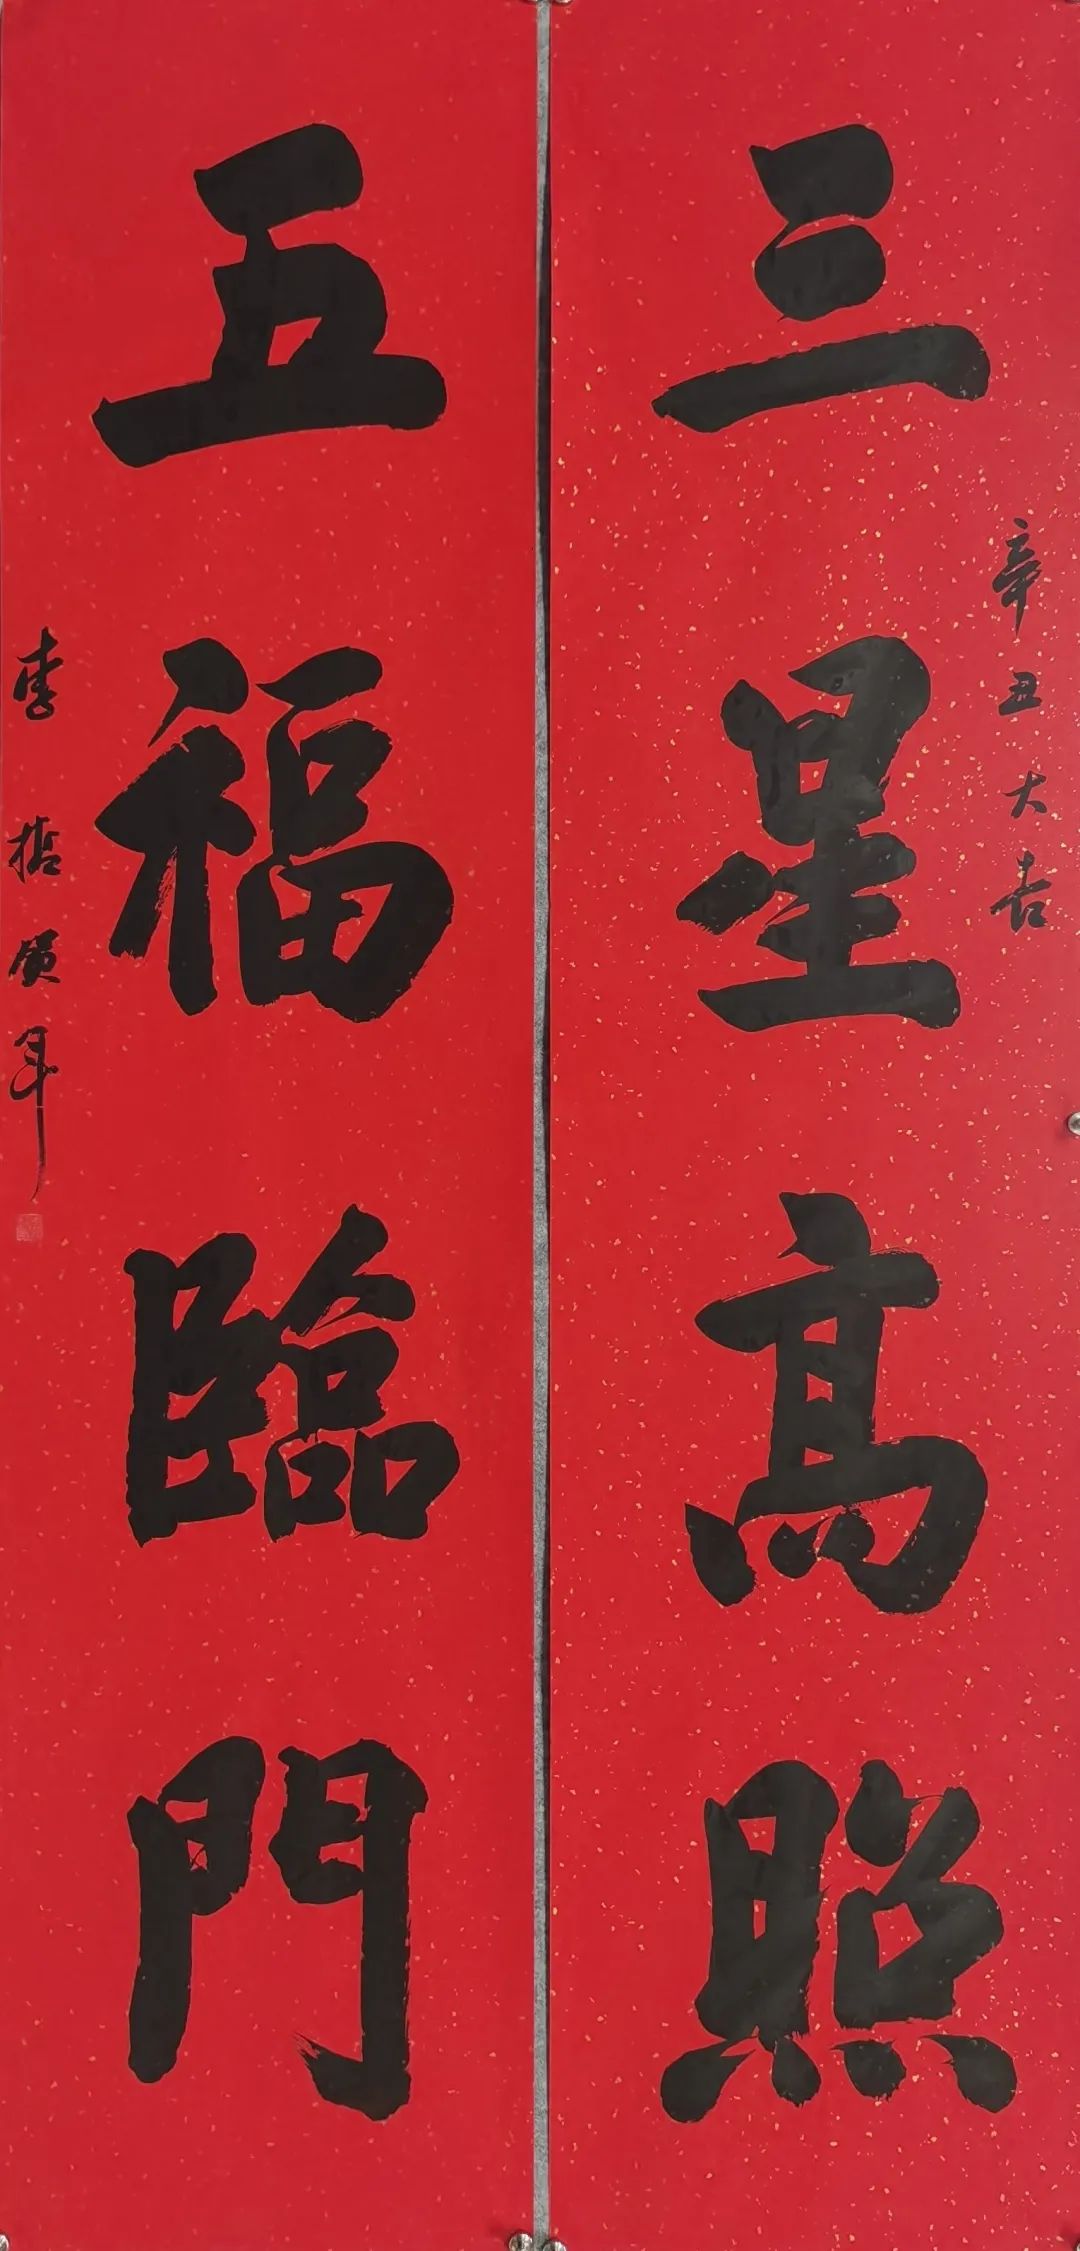 三星高照
辛丑大吉
五福臨門
李哲賀年